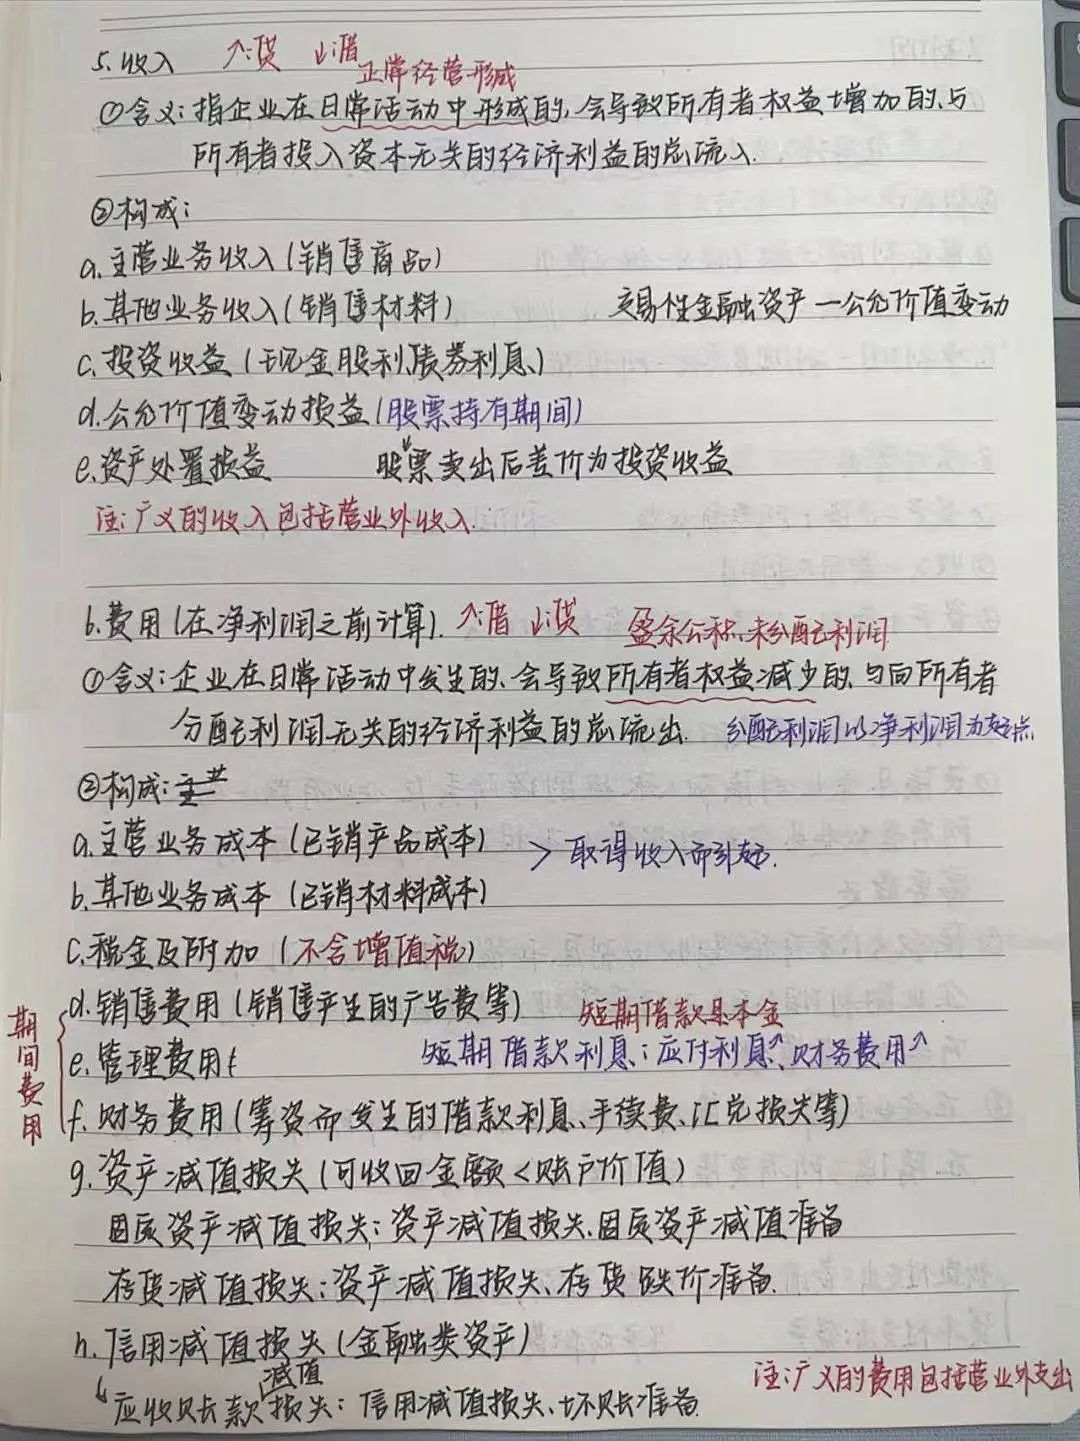 5.收入 ↑:贷 ↓:借
正常经营形成
①含义:指企业在日常活动中形成的、会导致所有者权益增加的、与
所有者投入资本无关的经济利益的总流入.
②构成:
a.主营业务收入(销售商品)
b.其他业务收入(销售材料) 交易性金融资产—公允价值变动
c.投资收益(现金股利、债券利息、)
d.公允价值变动损益(股票持有期间)
e.资产处置损益 股票卖出后差价为投资收益
注:广义的收入包括营业外收入.
6.费用(在净利润之前计算). ↑:借 ↓:贷 盈余公积、未分配利润
①含义:企业在日常活动中发生的、会导致所有者权益减少的、与向所有者
分配利润无关的经济利益的总流出. 分配利润以净利润为起点
②构成:
a.主营业务成本(已销产品成本) > 取得收入而引起.
b.其他业务成本(已销材料成本)
c.税金及附加(不含增值税)
期间费用
d.销售费用(销售产生的广告费等) 短期借款是本金
e.管理费用 短期借款利息:应付利息↑、财务费用↑
f.财务费用(筹资而发生的借款利息、手续费、汇兑损失等)
g.资产减值损失(可收回金额<账户价值)
固定资产减值损失:资产减值损失、固定资产减值准备
存货减值损失:资产减值损失、存货跌价准备.
h.信用减值损失(金融类资产)
↳应收账款减值损失:信用减值损失、坏账准备.
注:广义的费用包括营业外支出